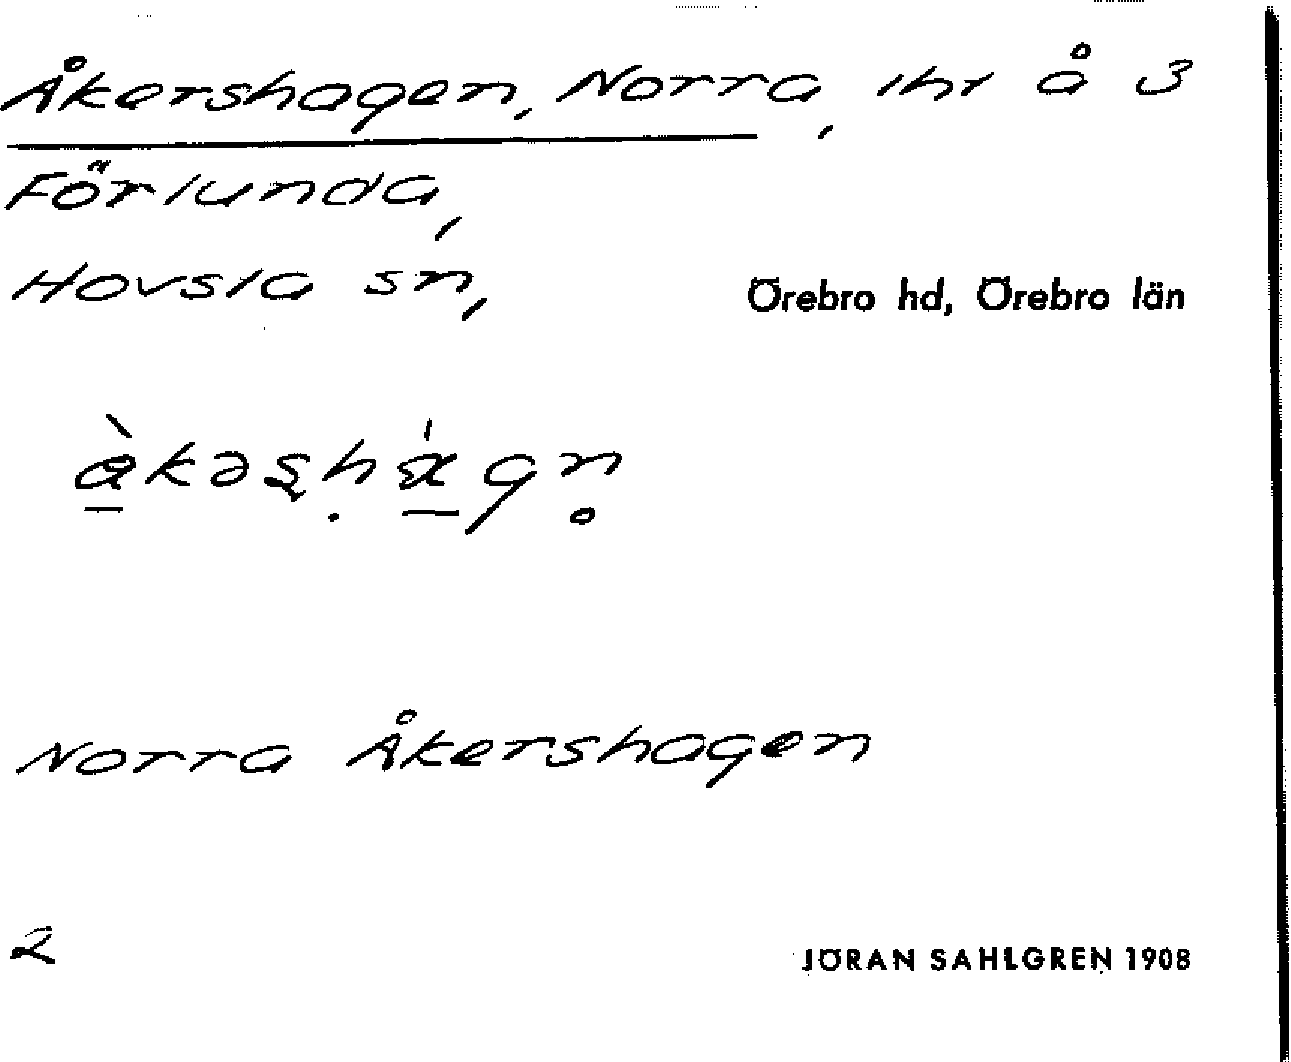 Åkershagen, Norra, lht å 3
Förlunda,
Hovsta sn, Örebro hd, Örebro län
Norra Åkershagen
2 JÖRAN SAHLGREN 1908